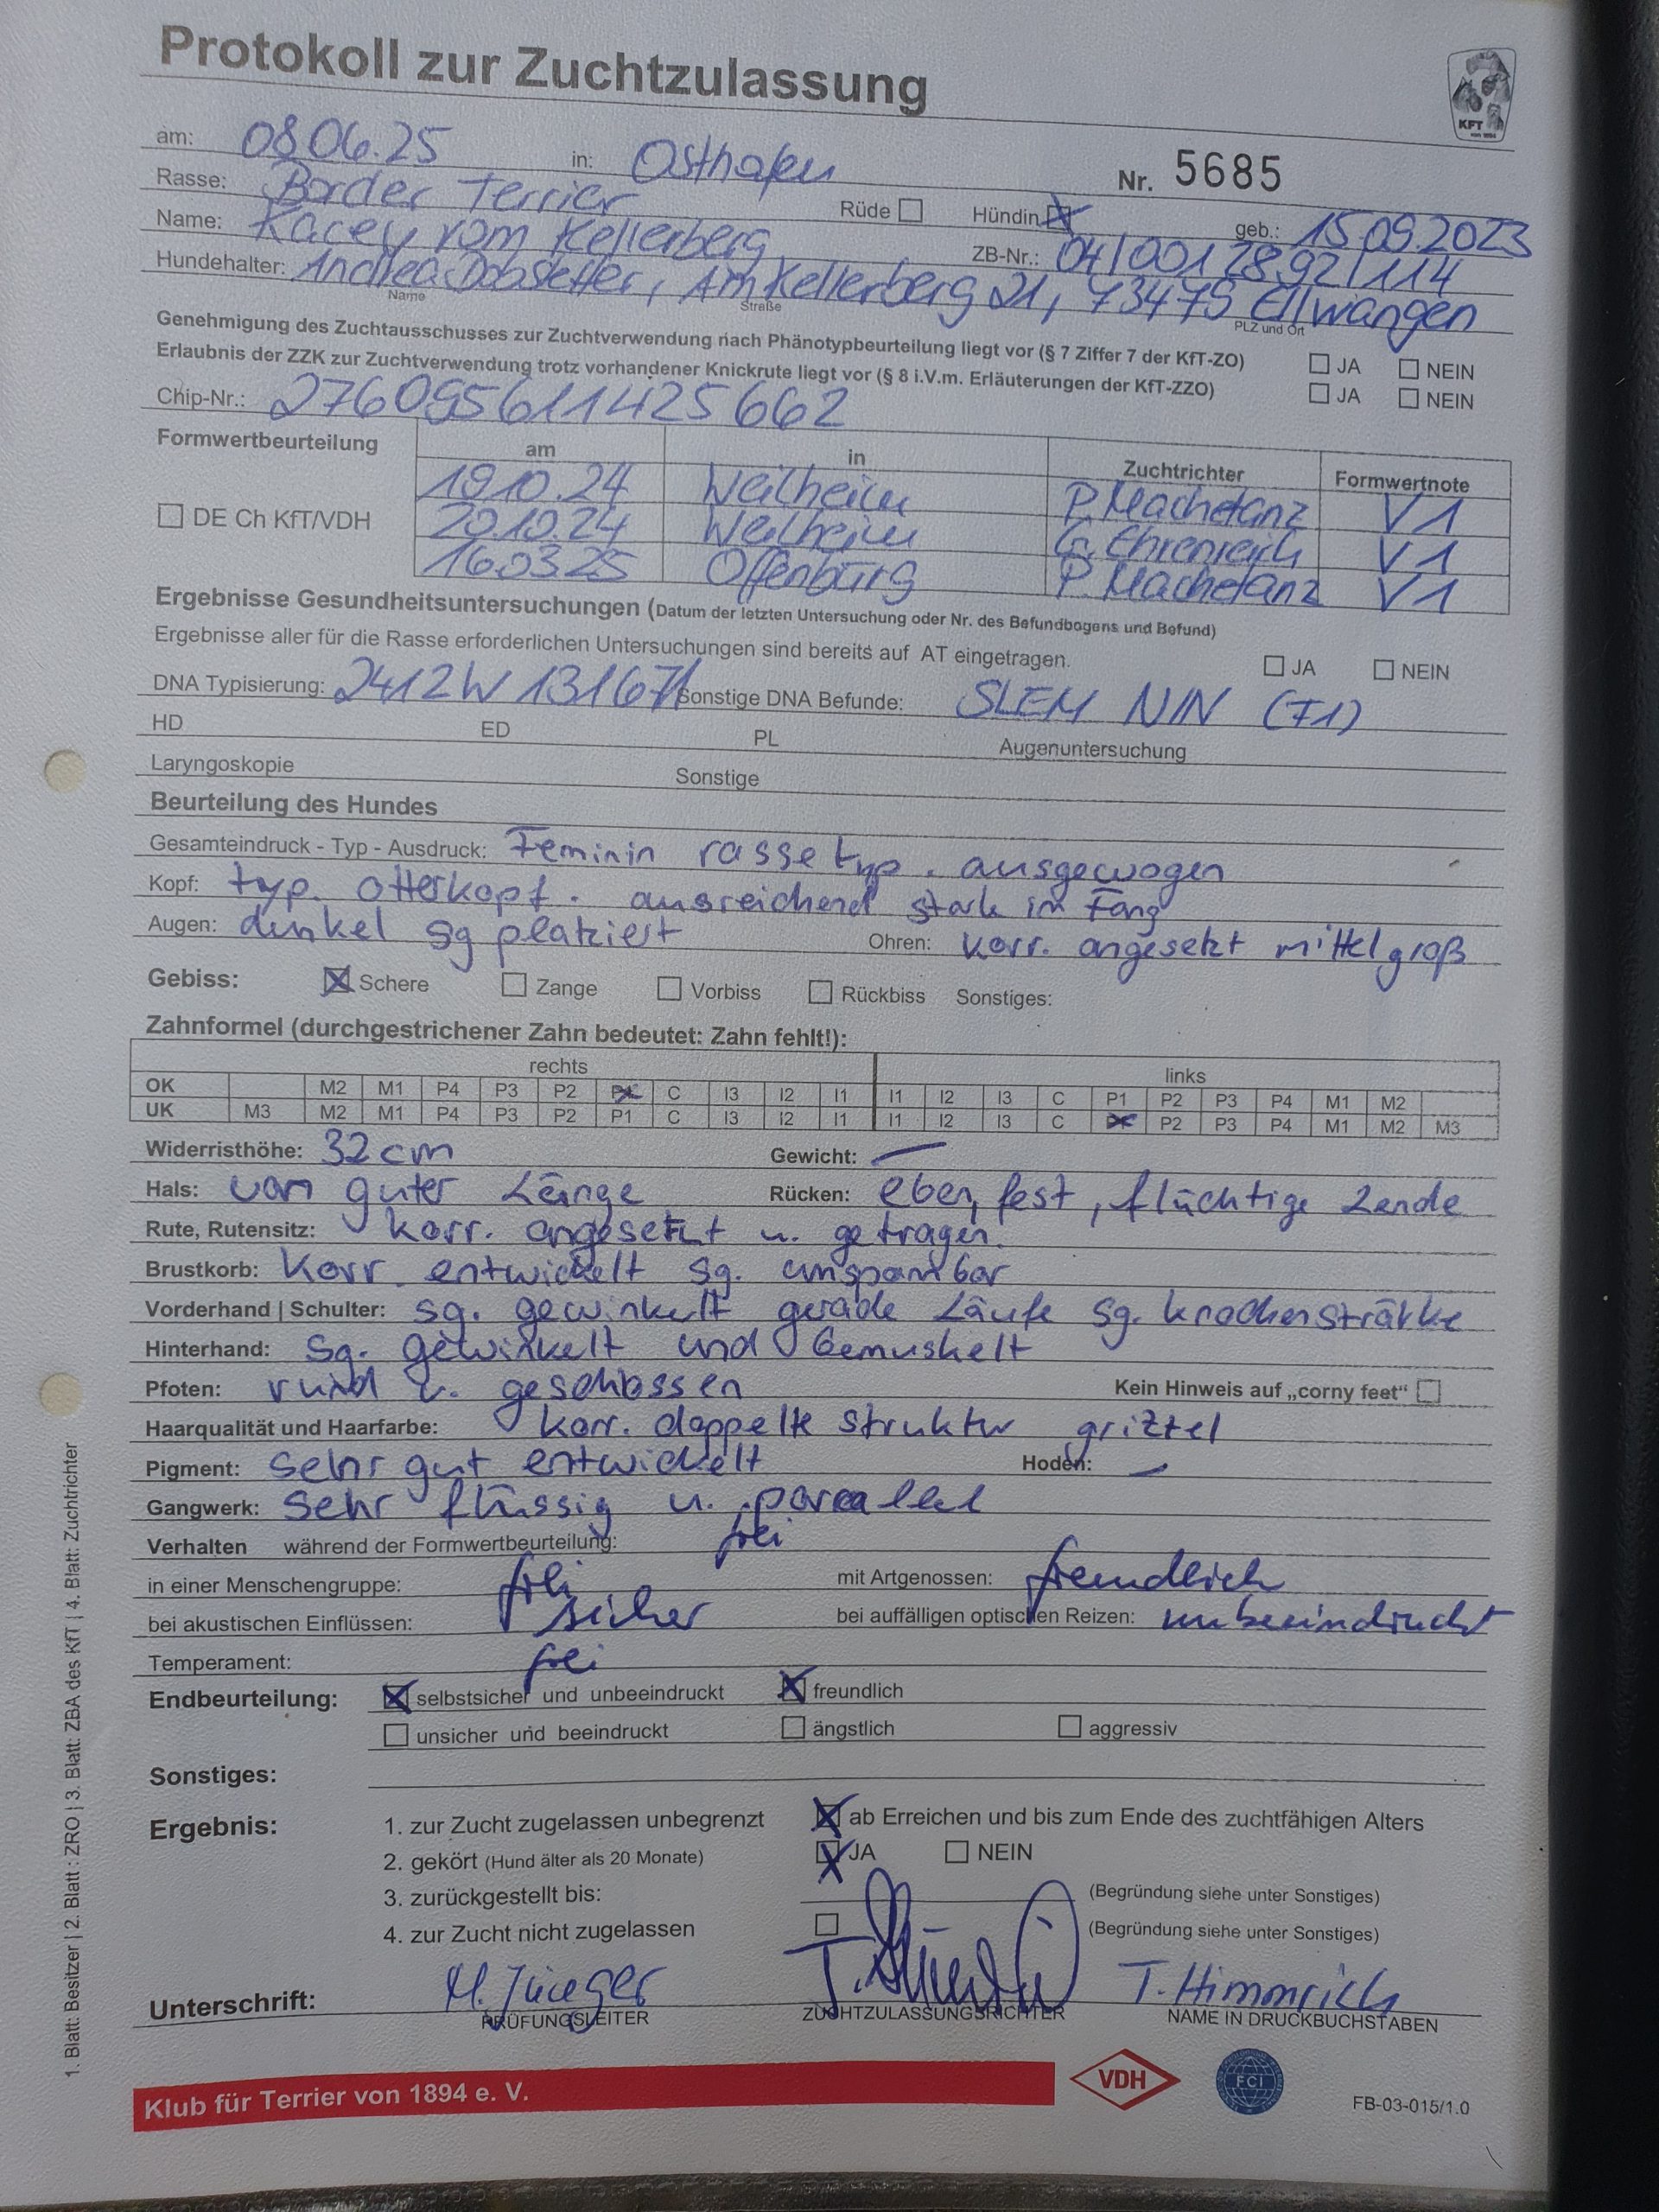 Protokoll zur Zuchtzulassung
KFT
von 1894
am: 08.06.25 in: Osthofen Nr. 5685
Rasse: Border Terrier Rüde ☐ Hündin ☒ geb.: 15.09.2023
Name: Kacey vom Kellerberg ZB-Nr.: 04/0012892/114
Hundehalter: Andrea Dobstetter, Am Kellerberg 21, 73479 Ellwangen
Name Straße PLZ und Ort
Genehmigung des Zuchtausschusses zur Zuchtverwendung nach Phänotypbeurteilung liegt vor (§ 7 Ziffer 7 der KfT-ZO) ☐ JA ☐ NEIN
Erlaubnis der ZZK zur Zuchtverwendung trotz vorhandener Knickrute liegt vor (§ 8 i.V.m. Erläuterungen der KfT-ZZO) ☐ JA ☐ NEIN
Chip-Nr.: 276095611425662
Formwertbeurteilung am in Zuchtrichter Formwertnote
19.10.24 Weilheim P. Machetanz V1
☐ DE Ch KfT/VDH 20.10.24 Weilheim G. Ehrenreich V1
16.03.25 Offenburg P. Machetanz V1
Ergebnisse Gesundheitsuntersuchungen (Datum der letzten Untersuchung oder Nr. des Befundbogens und Befund)
Ergebnisse aller für die Rasse erforderlichen Untersuchungen sind bereits auf AT eingetragen. ☐ JA ☐ NEIN
DNA Typisierung: 2412W131671 Sonstige DNA Befunde: SLEM N/N (F1)
HD ED PL Augenuntersuchung
Laryngoskopie Sonstige
Beurteilung des Hundes
Gesamteindruck - Typ - Ausdruck: Feminin rassetyp. ausgewogen
Kopf: typ. Otterkopf. ausreichend stark im Fang
Augen: dunkel sg platziert Ohren: korr. angesetzt mittelgroß
Gebiss: ☒ Schere ☐ Zange ☐ Vorbiss ☐ Rückbiss Sonstiges:
Zahnformel (durchgestrichener Zahn bedeutet: Zahn fehlt!):
rechts links
OK M2 M1 P4 P3 P2 P1 C I3 I2 I1 I1 I2 I3 C P1 P2 P3 P4 M1 M2
UK M3 M2 M1 P4 P3 P2 P1 C I3 I2 I1 I1 I2 I3 C P1 P2 P3 P4 M1 M2 M3
Widerristhöhe: 32 cm Gewicht: —
Hals: von guter Länge Rücken: eben, fest, flüchtige Lende
Rute, Rutensitz: korr. angesetzt u. getragen.
Brustkorb: Korr. entwickelt sg. umspannbar
Vorderhand | Schulter: sg. gewinkelt gerade Läufe sg. knochenstärke
Hinterhand: sg. gewinkelt und bemuskelt
Pfoten: rund u. geschlossen Kein Hinweis auf „corny feet“ ☐
Haarqualität und Haarfarbe: korr. doppelte struktur grizzel
Pigment: sehr gut entwickelt Hoden: —
Gangwerk: sehr flüssig u. parallel
Verhalten während der Formwertbeurteilung: frei
in einer Menschengruppe: frei mit Artgenossen: freundlich
bei akustischen Einflüssen: sicher bei auffälligen optischen Reizen: unbeeindruckt
Temperament: frei
Endbeurteilung: ☒ selbstsicher und unbeeindruckt ☒ freundlich
☐ unsicher und beeindruckt ☐ ängstlich ☐ aggressiv
Sonstiges:
Ergebnis: 1. zur Zucht zugelassen unbegrenzt ☒ ab Erreichen und bis zum Ende des zuchtfähigen Alters
2. gekört (Hund älter als 20 Monate) ☒ JA ☐ NEIN
3. zurückgestellt bis: (Begründung siehe unter Sonstiges)
4. zur Zucht nicht zugelassen ☐ (Begründung siehe unter Sonstiges)
Unterschrift: T. Himmrich
PRÜFUNGSLEITER ZUCHTZULASSUNGSRICHTER NAME IN DRUCKBUCHSTABEN
Klub für Terrier von 1894 e. V. VDH FCI FB-03-015/1.0
1. Blatt: Besitzer | 2. Blatt : ZRO | 3. Blatt: ZBA des KfT | 4. Blatt: Zuchtrichter